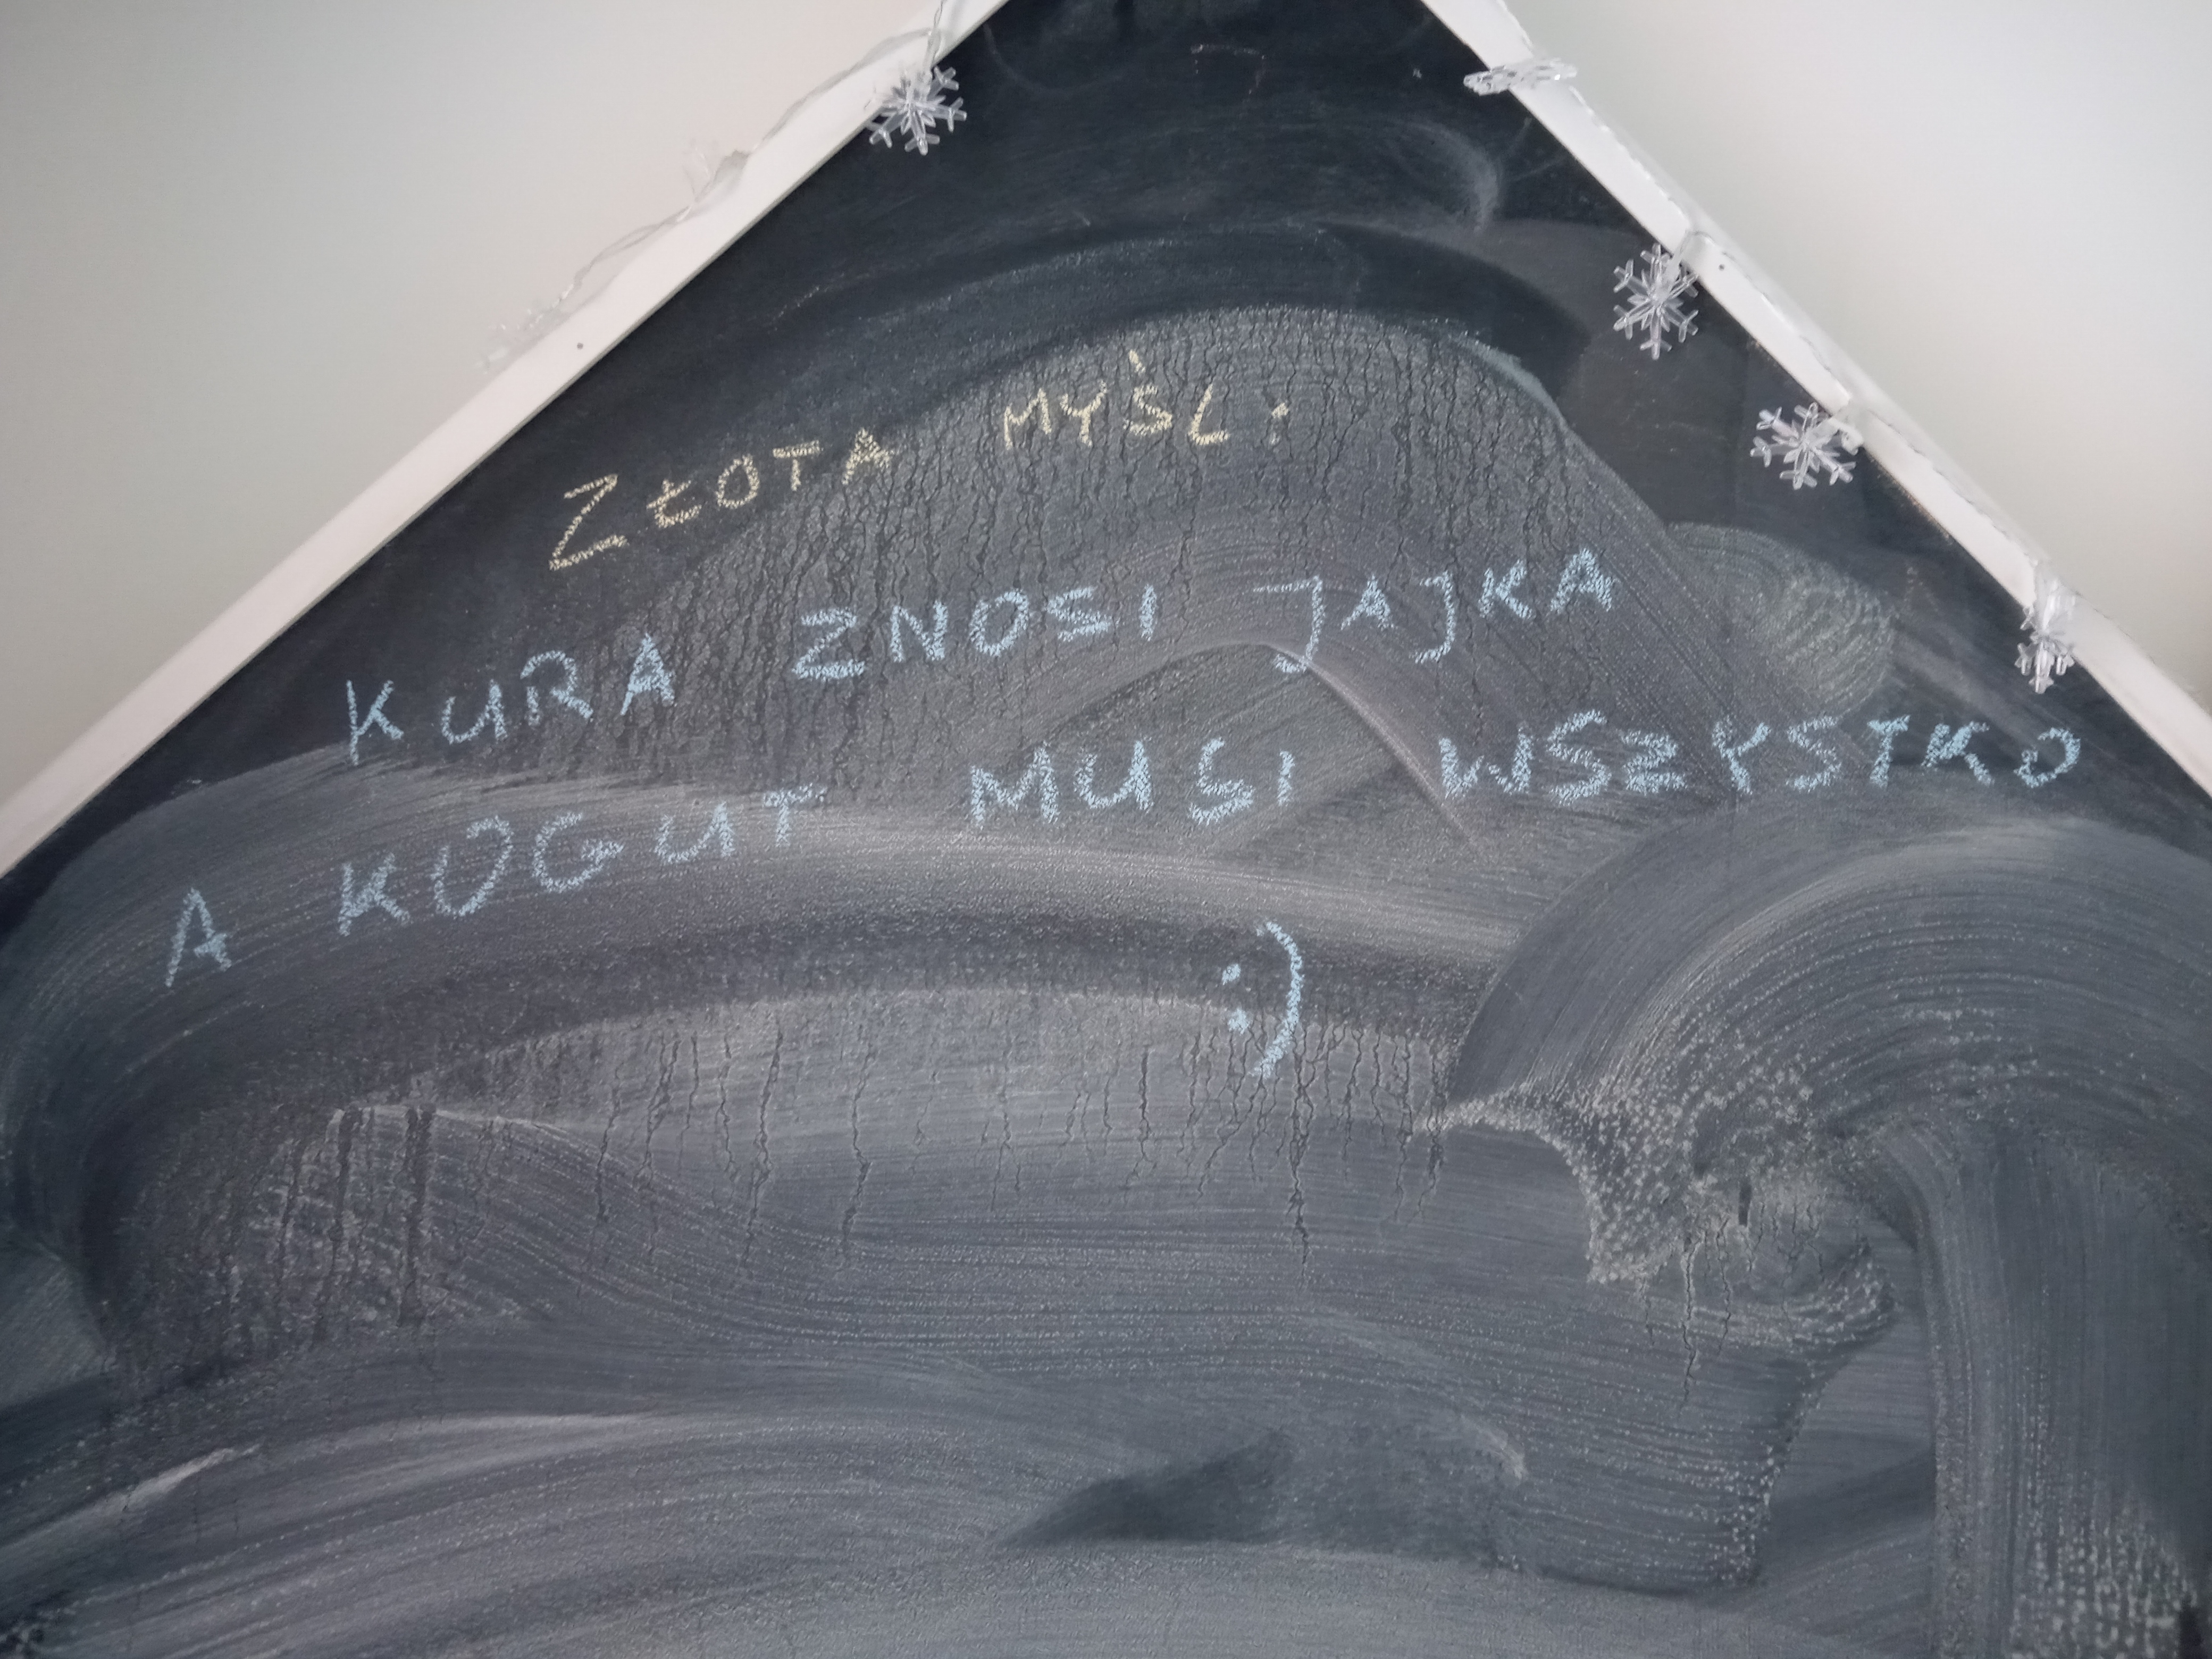 ZŁOTA MYŚL:
KURA ZNOSI JAJKA
A KOGUT MUSI WSZYSTKO
:)